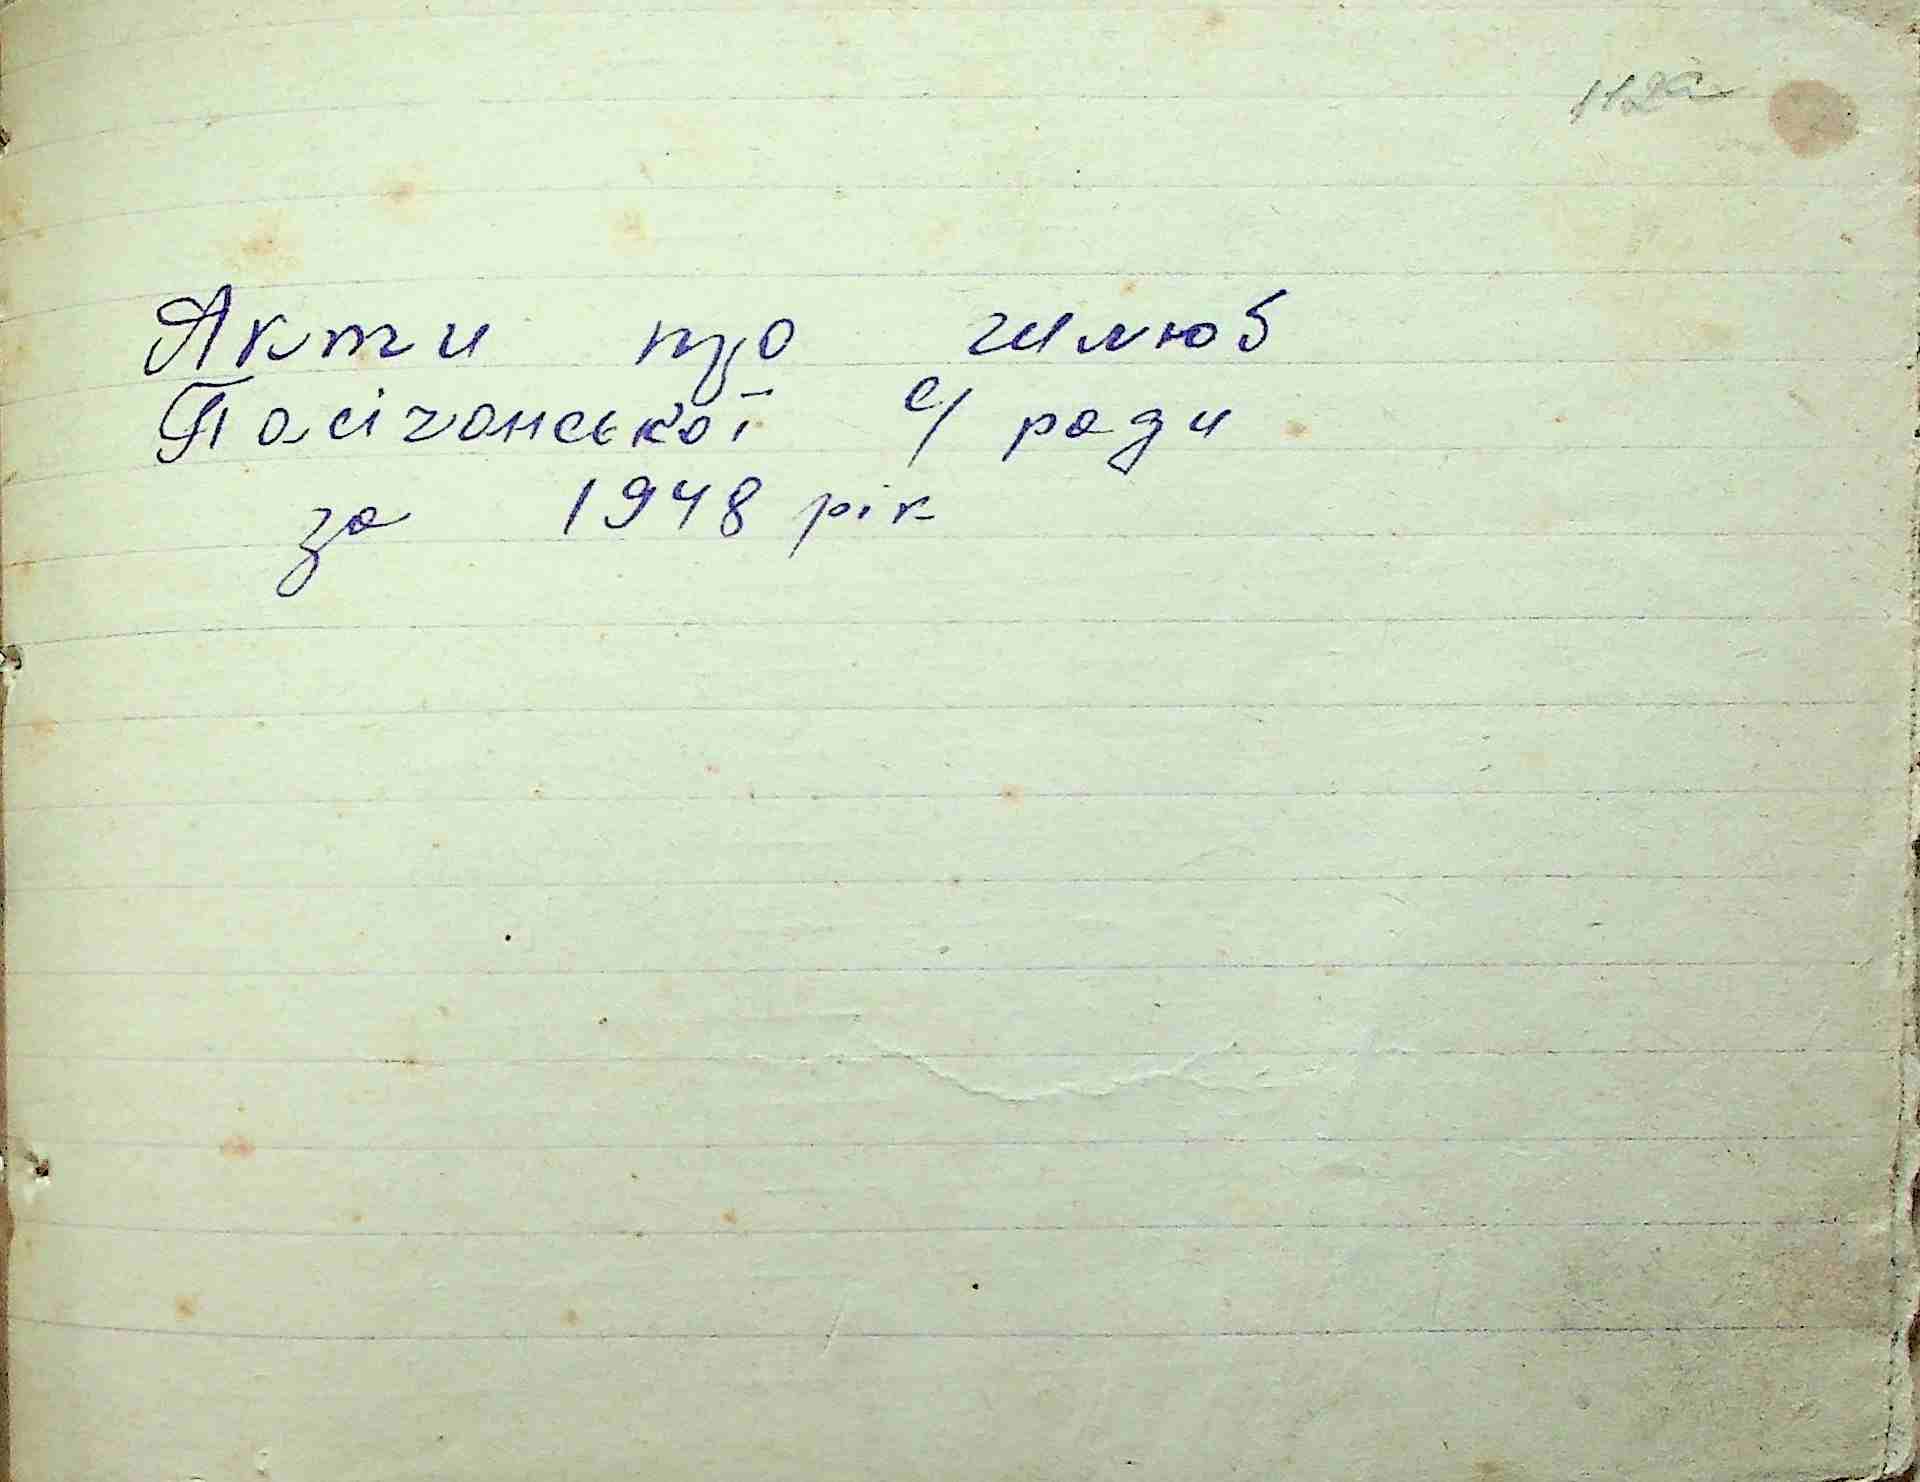 112а
Акти про шлюб
Пасічанської с/ ради
за 1948 рік